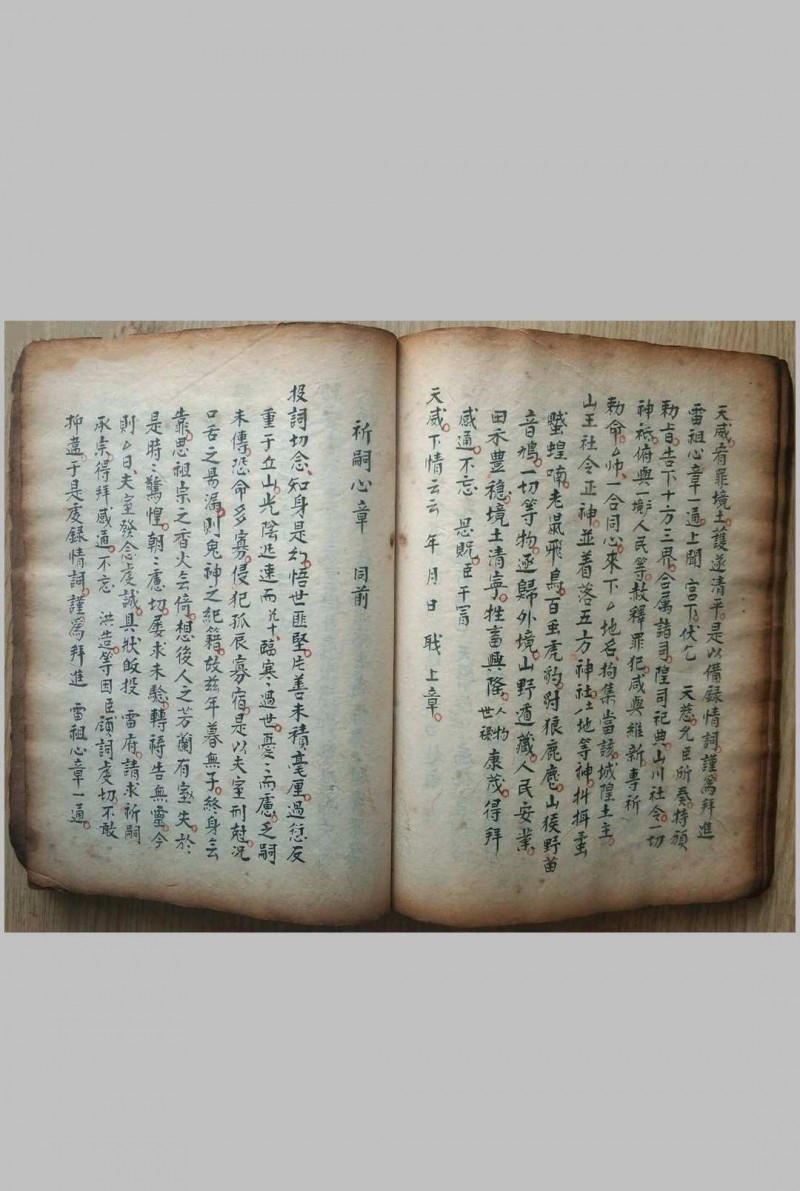 天威。宥罪境土。護遂清平。是以備錄情詞。謹爲拜進
雷祖心章一通。上聞 宮下。伏乞 天慈。允臣所奏。特頒
勅旨。告下十方三界。合属諸司。隍司祀典。山川社令。一切
神祇。俯與一鄉人民等。赦釋罪犯。咸與維新。專祈
勅命。厶帅。一合同心。來下厶地名。拘集當該。城隍土主。
山王社令正神。並着落五方神社。土地等神。糾捐
蝗喃。老鼠飛鳥。百虫虎豹。豺狼鹿麂。山猴野
音鴉。一切等物。逐歸外境。山野遁藏。人民安業。
田禾豊穩。境土清寧。牲畜興隆。人物世祿 康茂。得拜
感通。不忘 恩貺。臣干冐
天威。下情云云 年 月 日 戢 上章。
祈嗣心章 同前
投詞切念。知身是幻。悟世匪堅。片善未積。毫厘。過愆反
重于丘山。光陰迅速。而 臨寒。過世憂憂而慮。乏嗣
未傳。恐命多寡。侵犯孤辰寡宿。是以夫室刑尅。况
口舌之易漏。則鬼神之紀籍。故玆年暮無子。終身無
靠。思祖宗之香火無倚。想後人之芳蘭有室。失於
是時時驚惶。朝朝慮切。屡求未驗。轉禱告無靈。今
則厶日。夫室發念虔誠。具狀皈投 雷府。請求祈嗣
承宗。得拜感通。不忘 洪造。等因。臣領詞虔切。不敢
抑蓋。于是虔錄情詞。謹爲拜進 雷祖心章一通。